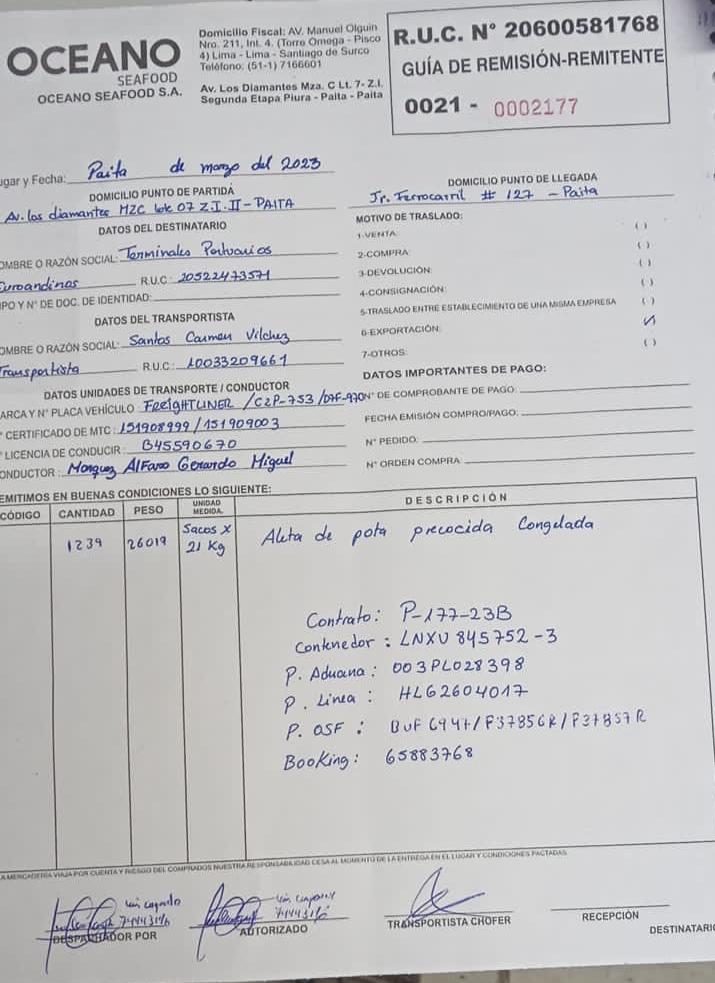 OCEANO
SEAFOOD
OCEANO SEAFOOD S.A.
Domicilio Fiscal: AV. Manuel Olguin
Nro. 211, Int. 4. (Torre Omega - Pisco
4) Lima - Lima - Santiago de Surco
Teléfono: (51-1) 7166601
Av. Los Diamantes Mza. C Lt. 7- Z.I.
Segunda Etapa Piura - Paita - Paita
R.U.C. N° 20600581768
GUÍA DE REMISIÓN-REMITENTE
0021 - 0002177
ugar y Fecha: Paita de marzo del 2023
DOMICILIO PUNTO DE PARTIDA
Av. los diamantes MZC lote 07 Z.I.II - PAITA
DOMICILIO PUNTO DE LLEGADA
Jr. Ferrocarril # 127 - Paita
DATOS DEL DESTINATARIO
OMBRE O RAZÓN SOCIAL: Terminales Portuarios
Euroandinos R.U.C: 20522473571
IPO Y N° DE DOC. DE IDENTIDAD:
DATOS DEL TRANSPORTISTA
OMBRE O RAZÓN SOCIAL: Santos Carmen Vilchez
Transportista R.U.C.: 10033209661
MOTIVO DE TRASLADO:
1-VENTA: ( )
2-COMPRA: ( )
3-DEVOLUCIÓN: ( )
4-CONSIGNACIÓN: ( )
5-TRASLADO ENTRE ESTABLECIMIENTO DE UNA MISMA EMPRESA ( )
6-EXPORTACIÓN:
7-OTROS: ( )
DATOS UNIDADES DE TRANSPORTE / CONDUCTOR
ARCA Y N° PLACA VEHÍCULO FREIGHTLINER / C2P-753 /
° CERTIFICADO DE MTC: 151908999 / 151909003
° LICENCIA DE CONDUCIR: B45590670
ONDUCTOR: Alfaro Gerardo Miguel
DATOS IMPORTANTES DE PAGO:
N° DE COMPROBANTE DE PAGO:
FECHA EMISIÓN COMPRO/PAGO:
N° PEDIDO:
N° ORDEN COMPRA:
EMITIMOS EN BUENAS CONDICIONES LO SIGUIENTE:
CÓDIGO CANTIDAD PESO UNIDAD MEDIDA. DESCRIPCIÓN
1239 26019 Sacos x 21 Kg Aleta de pota precocida Congelada
Contrato: P-177-23B
Contenedor: LNXU 845752-3
P. Aduana: 003PL028398
P. Linea: HLG2604017
P. OSF:
Booking: 65883768
A MERCADERÍA VIAJA POR CUENTA Y RIESGO DEL COMPRADOS NUESTRA RESPONSABILIDAD CESA AL MOMENTO DE LA ENTREGA EN EL LUGAR Y CONDICIONES PACTADAS
DESPACHADOR POR
AUTORIZADO
TRANSPORTISTA CHOFER
RECEPCIÓN
DESTINATARIO